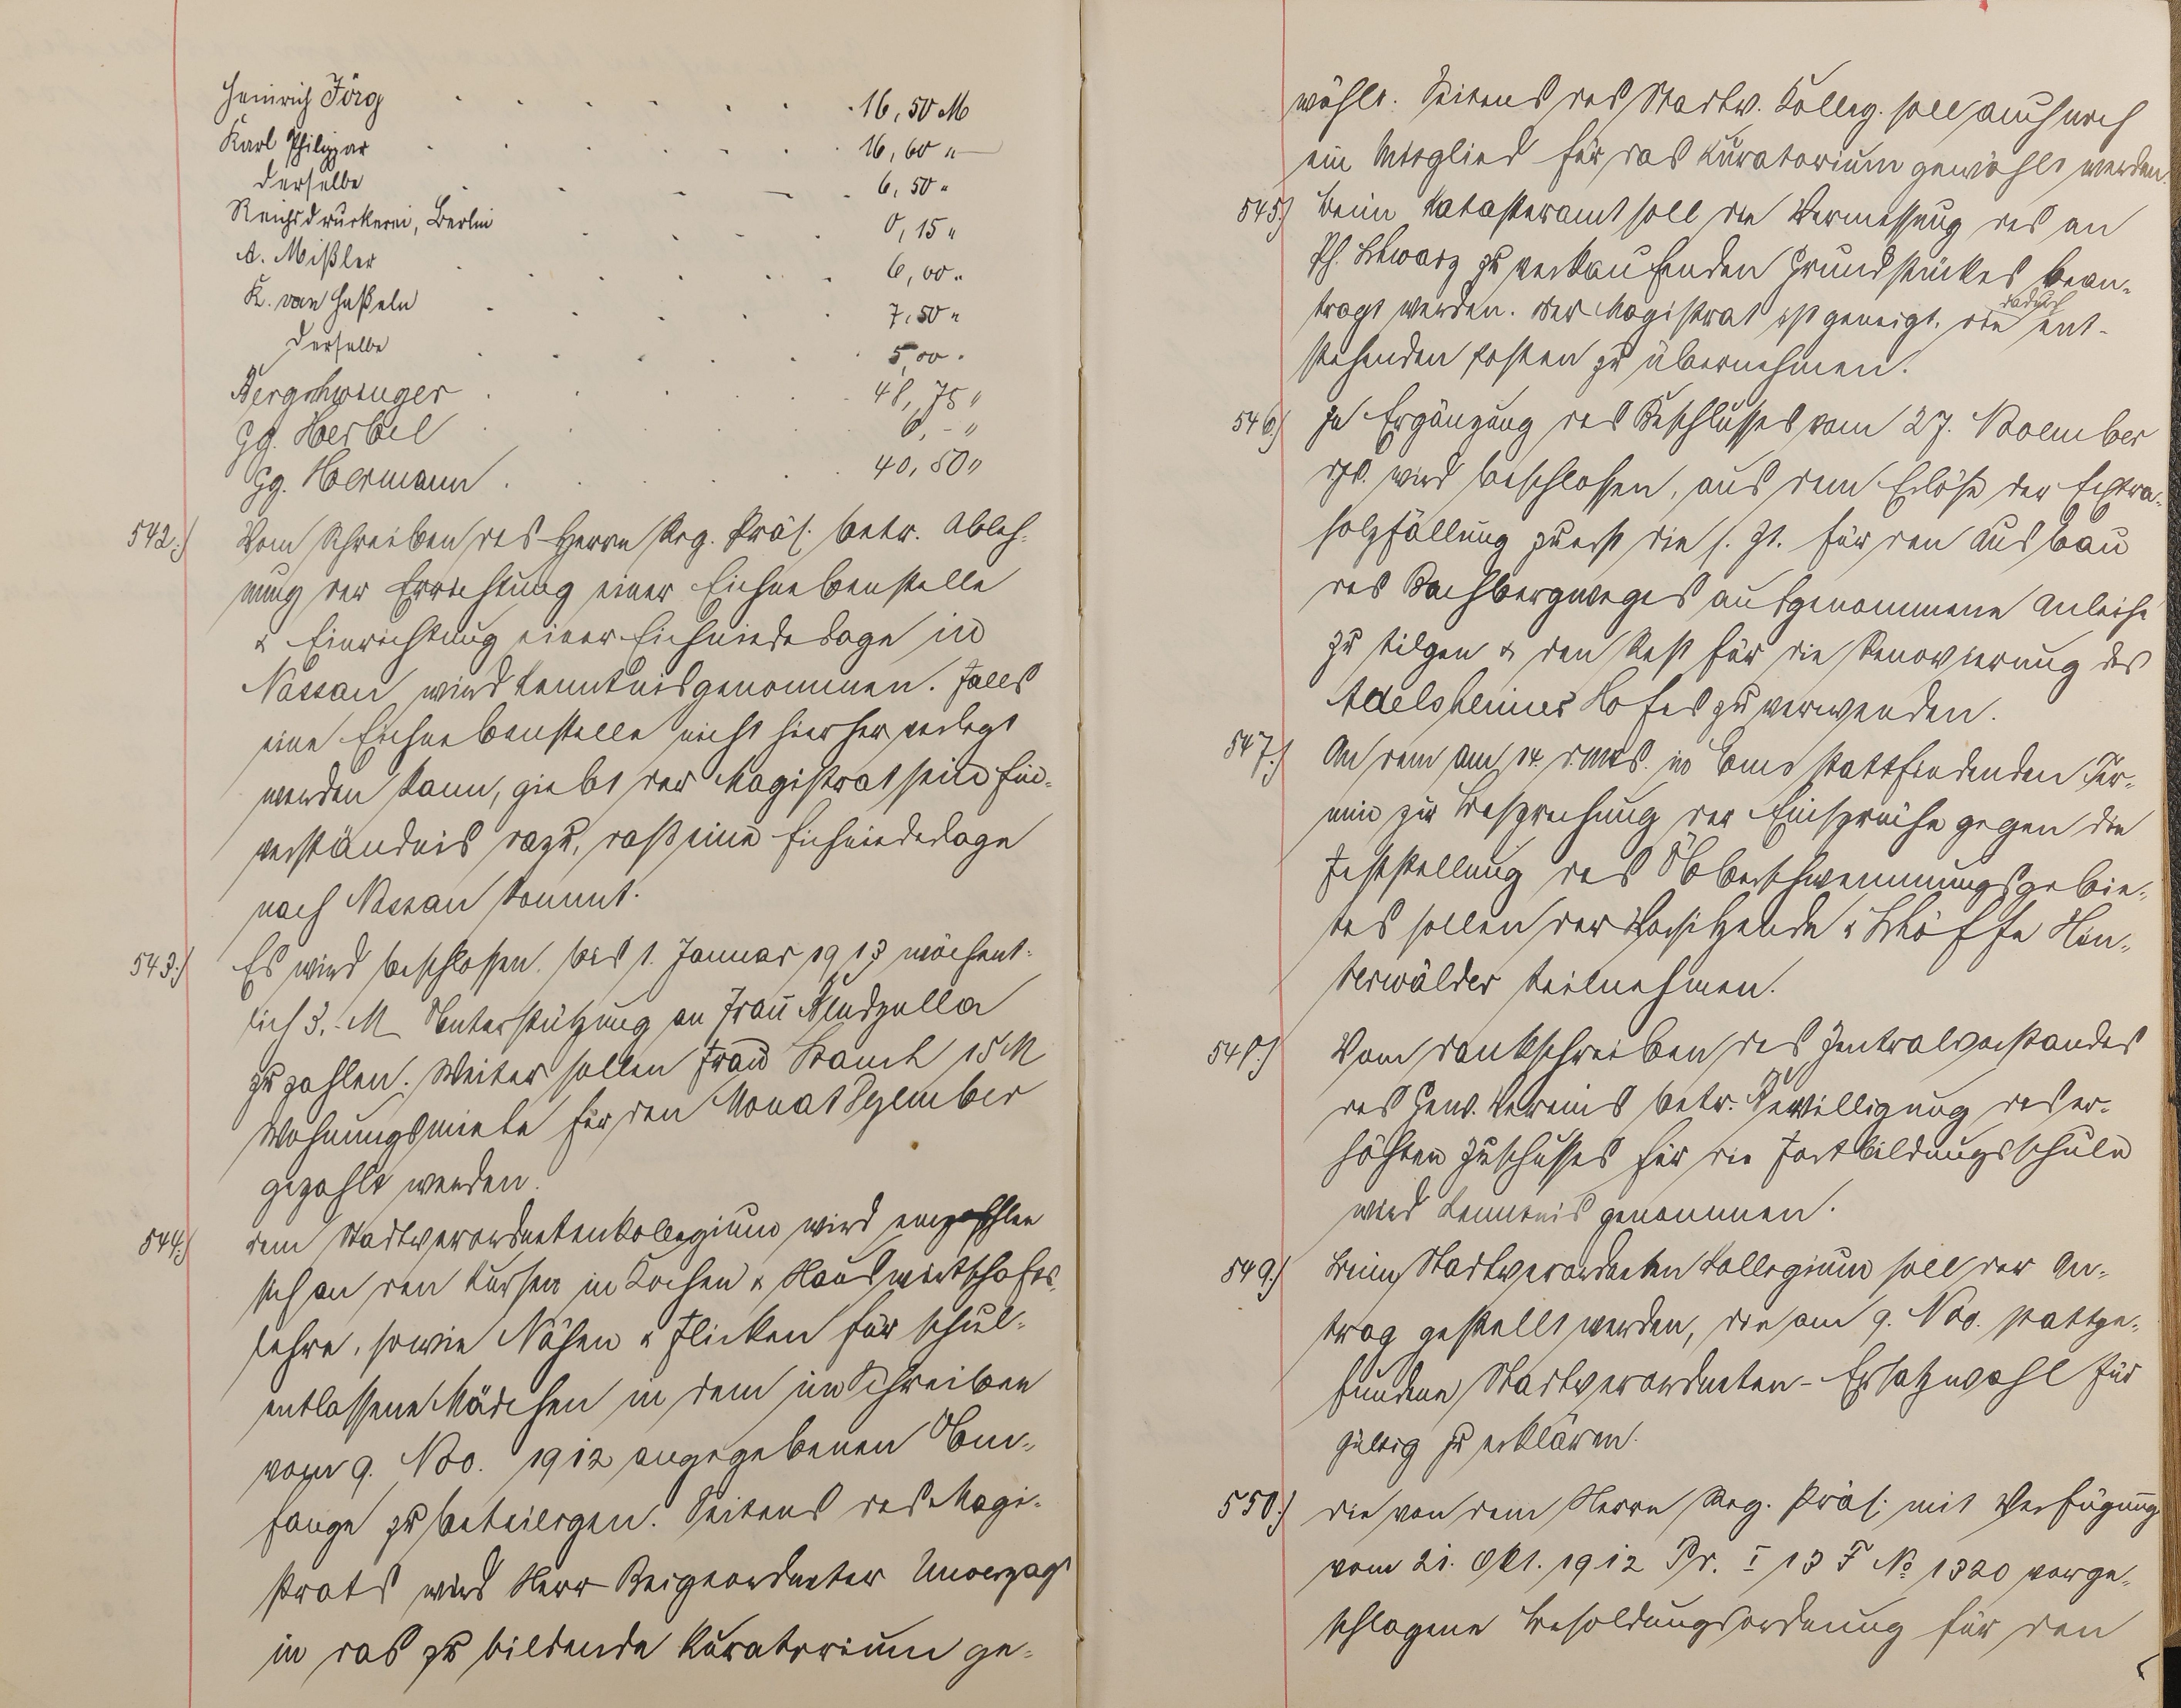 Heinrich Jörg . . . . . . . 16,50 M
Karl Philippar . . . . . . 16,60 "
Derselbe . . . . . 6,50 "
Reichsdruckerei, Berlin . . . . 0,15 "
A. Mißler . . . . . . 6,00 "
K. von Haßeln . . . . . 7,50 "
Derselbe . . . . . 5,00 "
Bergschwenger . . . . . 48,75 "
Gg. Herbel . . . . . 6,- "
Gg. Hermann . . . . . 40,50 "
542.) Vom Schreiben des Herrn Reg. Präs. betr. Ableh-
nung der Errichtung einer Eichnebenstelle
& Einrichtung einer Eichniederlage in
Nassau wird Kenntnis genommen. Falls
eine Eichnebenstelle nicht hierher verlegt
werden kann, giebt der Magistrat sein Ein-
verständnis dazu, daß eine Eichniederlage
nach Nassau kommt.
543.) Es wird beschlossen, bis 1. Januar 1913 wöchent-
lich 3.- M Unterstützung an Frau
zu zahlen. Weiter sollen Frau Stauch 15 M
Wohnungsmiete für den Monat Dezember
gezahlt werden.
544.) Dem Stadtverordnetenkollegium wird empfohlen
sich an den Kursen in Kochen & Hauswirtschafts-
lehre, sowie Nähen & Flicken für schul-
entlassene Mädchen in dem im Schreiben
vom 9. Nov. 1912 angegebenen Um-
fange zu beteiligen. Seitens des Magi-
strats wird Herr Beigeordneter Unverzagt
in das zu bildende Kuratorium ge-
wählt. Seitens des Stadtv. Kolleg. soll auch noch
ein Mitglied für das Kuratorium gewählt werden.
545.) Beim Katasteramt soll die Vermessung des an
Ph. Schwarz zu verkaufenden Grundstückes bean-
tragt werden. Der Magistrat ist geneigt, die dadurch ent-
stehenden Kosten zu übernehmen.
546.) In Ergänzung des Beschlusses vom 27. November
ds. wird beschlossen, aus dem Erlöse der Extra-
holzfällung zuerst die s. Zt. für den Ausbau
des Bachbergweges aufgenommene Anleihe
zu tilgen & den Rest für die Renovierung des
Adelsheimer Hofes zu verwenden.
547.) An dem am 14. d. Mts. in Ems stattfindenden Ter-
min zur Besprechung der Einsprüche gegen die
Feststellung des Überschwemmungsgebie-
tes sollen der Vorsitzende & Schöffe Hin-
terwälder teilnehmen.
548.) Vom Dankschreiben des Zentralvorstandes
des Gew. Vereins betr. Bewilligung des er-
höhten Zuschusses für die Fortbildungsschule
wird Kenntnis genommen.
549.) Beim Stadtverordneten Kollegium soll der An-
trag gestellt werden, die am 9. Nov. stattge-
fundene Stadtverordneten-Ersatzwahl für
gültig zu erklären.
550.) Die von dem Herrn Reg. Präs. mit Verfügung
vom 21. Okt. 1912 Pr. I 13 F No 1320 vorge-
schlagene Besoldungsordnung für den